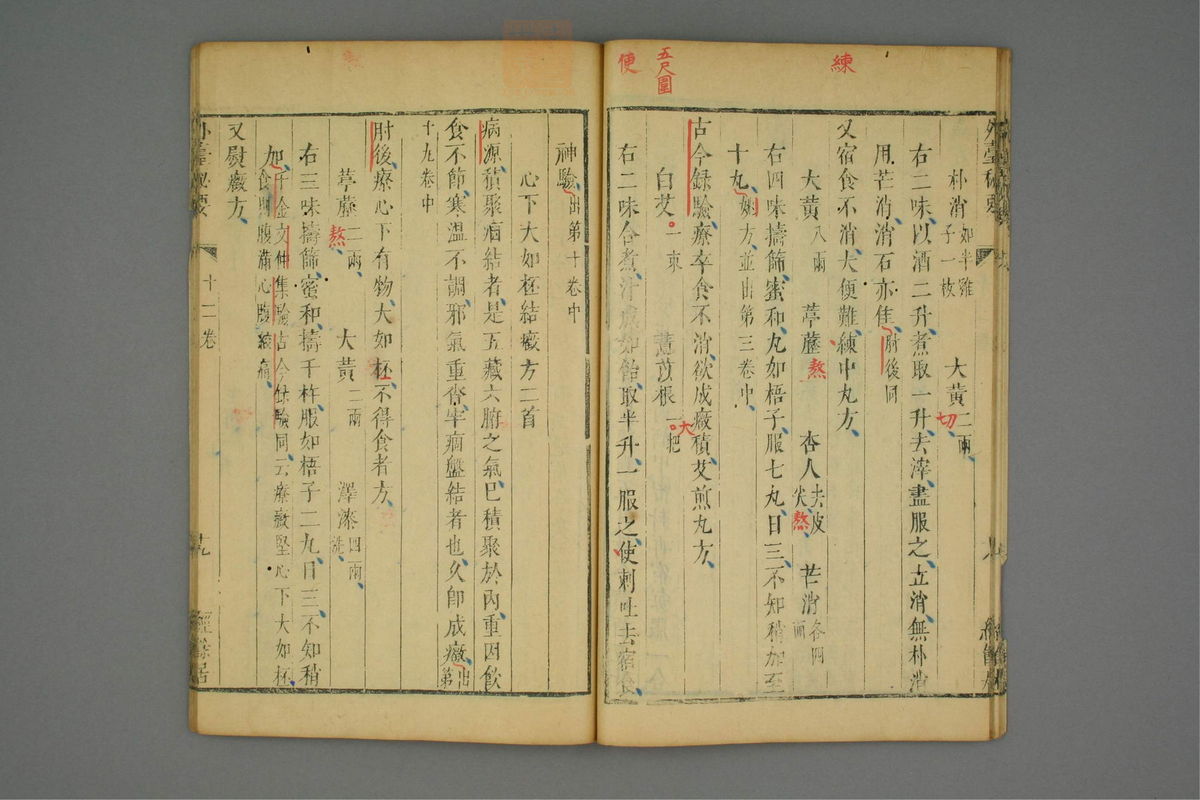 練
五尺圍
使
朴消如半雞子一枚 大黃二兩切
右二味以酒二升煮取一升去滓盡服之立消無朴消
用芒消消石亦佳肘後同
又宿食不消大便難練中丸方
大黃八兩 葶藶熬 杏人去皮尖熬 芒消各四兩
右四味擣篩蜜和丸如梧子服七丸日三不知稍加至
十丸姚方並出第三卷中
古今錄驗療卒食不消欲成癥積艾煎丸方
白艾一束 薏苡根一大把
右二味合煮汁成如飴取半升一服之使刺吐去宿食
神驗出第十卷中
心下大如杯結癥方二首
病源積聚痼結者是五藏六腑之氣已積聚於內重因飲
食不節寒溫不調邪氣重沓牢痼盤結者也久即成癥出第
十九卷中
肘後療心下有物大如杯不得食者方
葶藶二兩熬 大黃二兩 澤漆四兩洗
右三味擣篩蜜和擣千杵服如梧子二丸日三不知稍
加千金文仲集驗古今錄驗同云療癥堅心下大如杯食則腹滿心腹絞痛
又熨癥方
十二卷